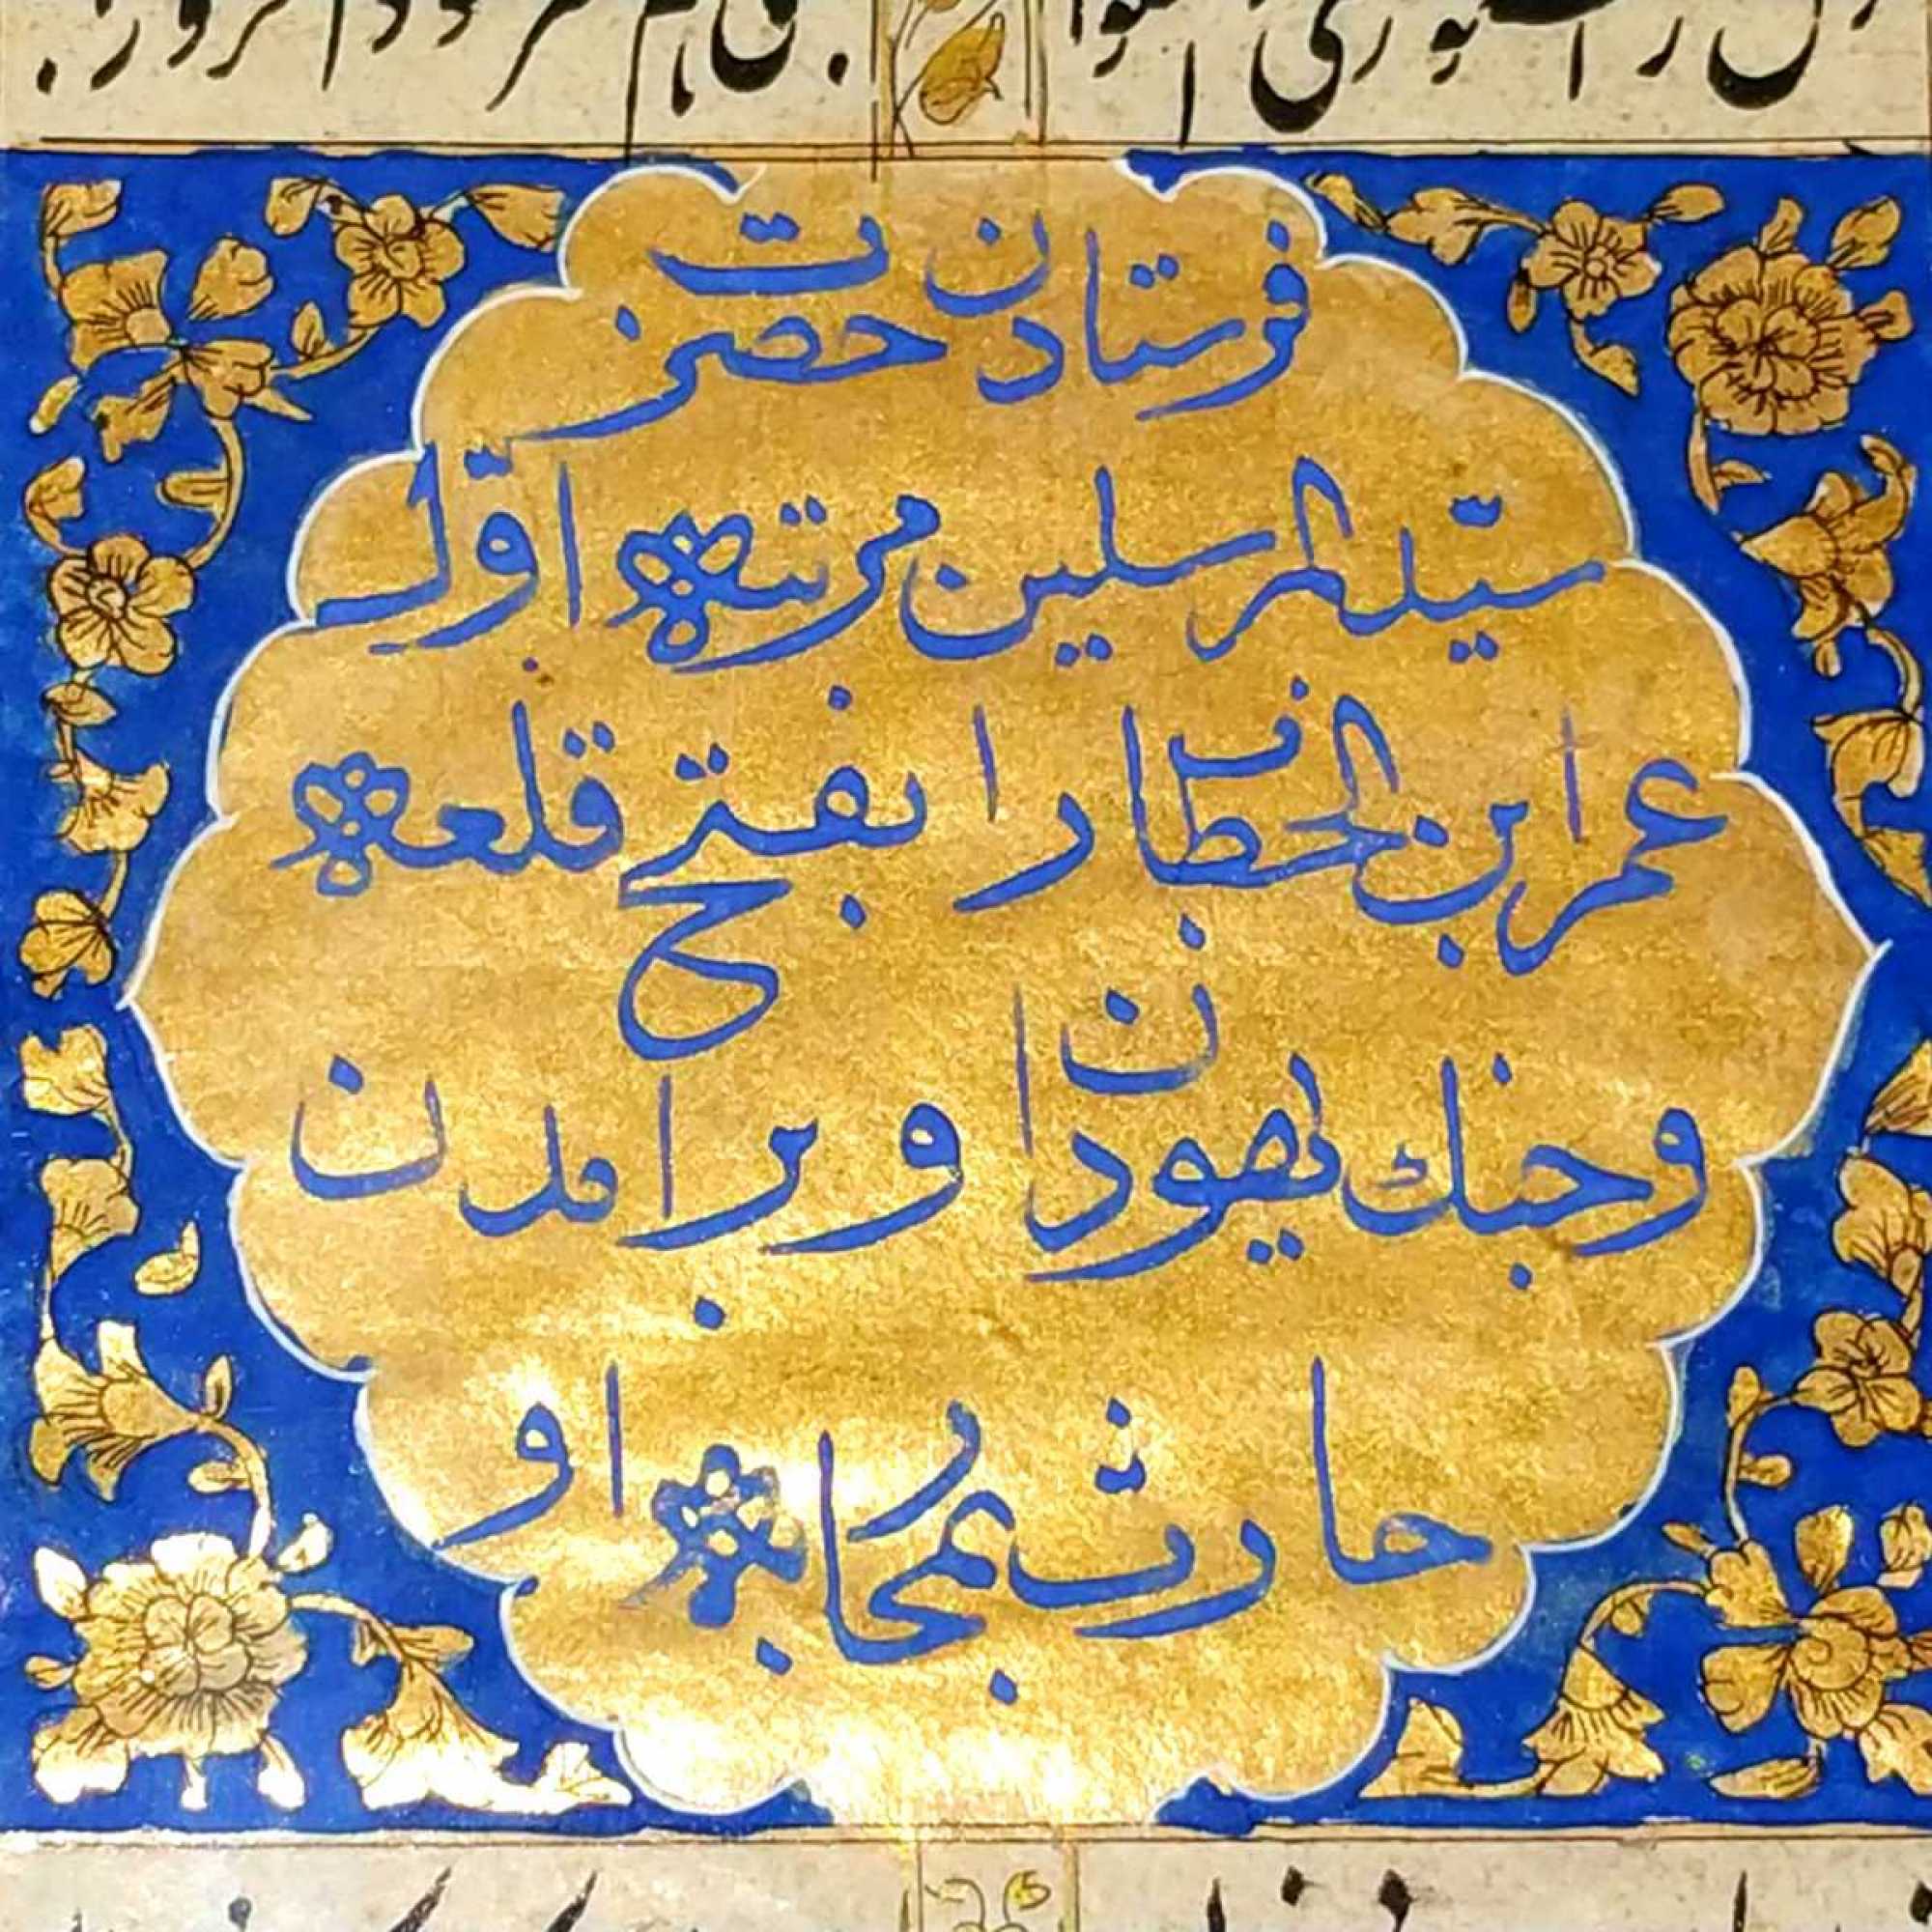 فرستادن حضرت
سیّد المرسلین مرتبه اوّل
عمر ابن الخطاب را بفتح قلعه
و جنك یهودان و برامدن
حارث بمحاربه او